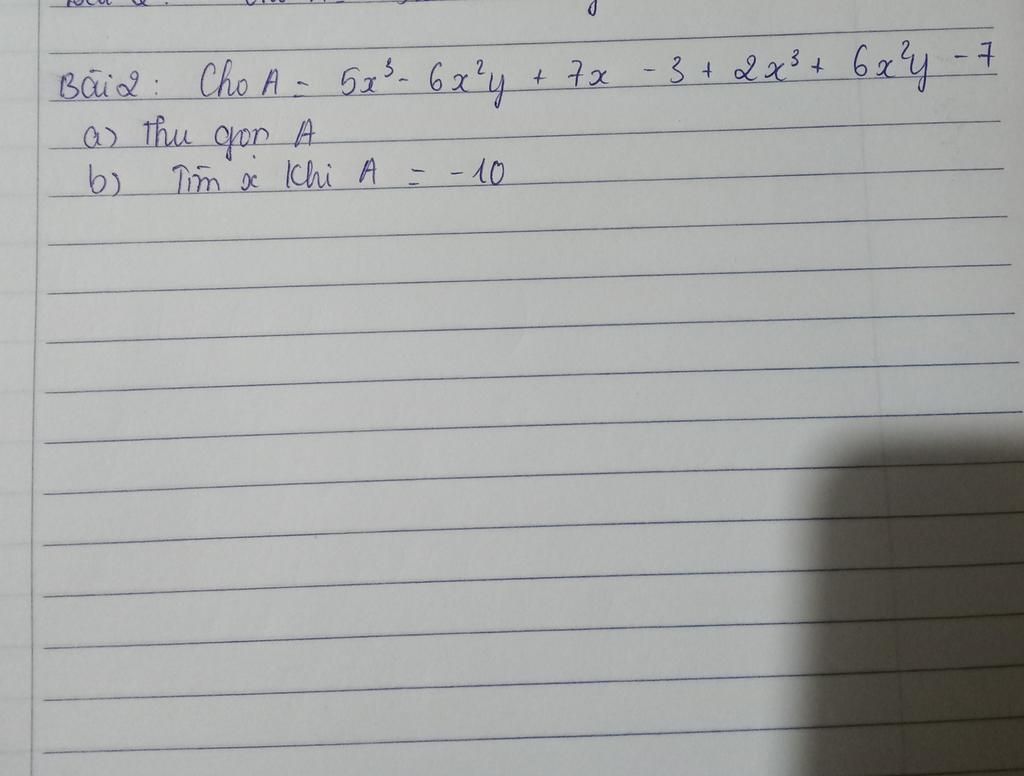 Bài 2: Cho A = 5x³ - 6x²y + 7x - 3 + 2x³ + 6x²y - 7
a) Thu gọn A
b) Tìm x khi A = -10